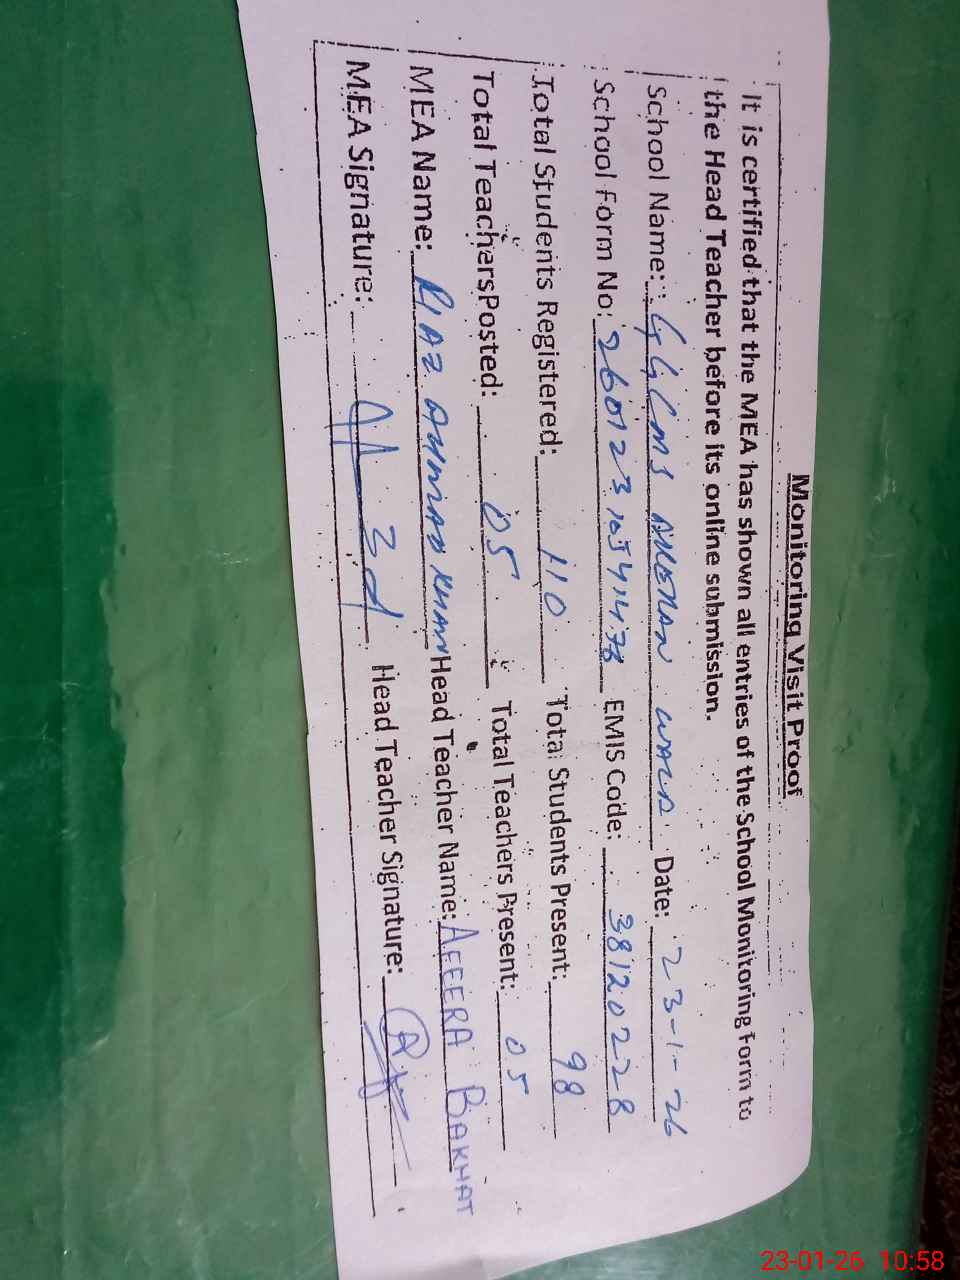 Monitoring Visit Proof
It is certified that the MEA has shown all entries of the School Monitoring Form to
the Head Teacher before its online submission.
School Name: GGCMS WALA Date: 23-1-26
School Form No: EMIS Code: 38120228
Total Students Registered: 110 Total Students Present: 98
Total TeachersPosted: 05 Total Teachers Present: 05
MEA Name: RIAZ AHMAD KHAN Head Teacher Name: AFEERA BAKHAT
MEA Signature: Head Teacher Signature:
23-01-26 10:58